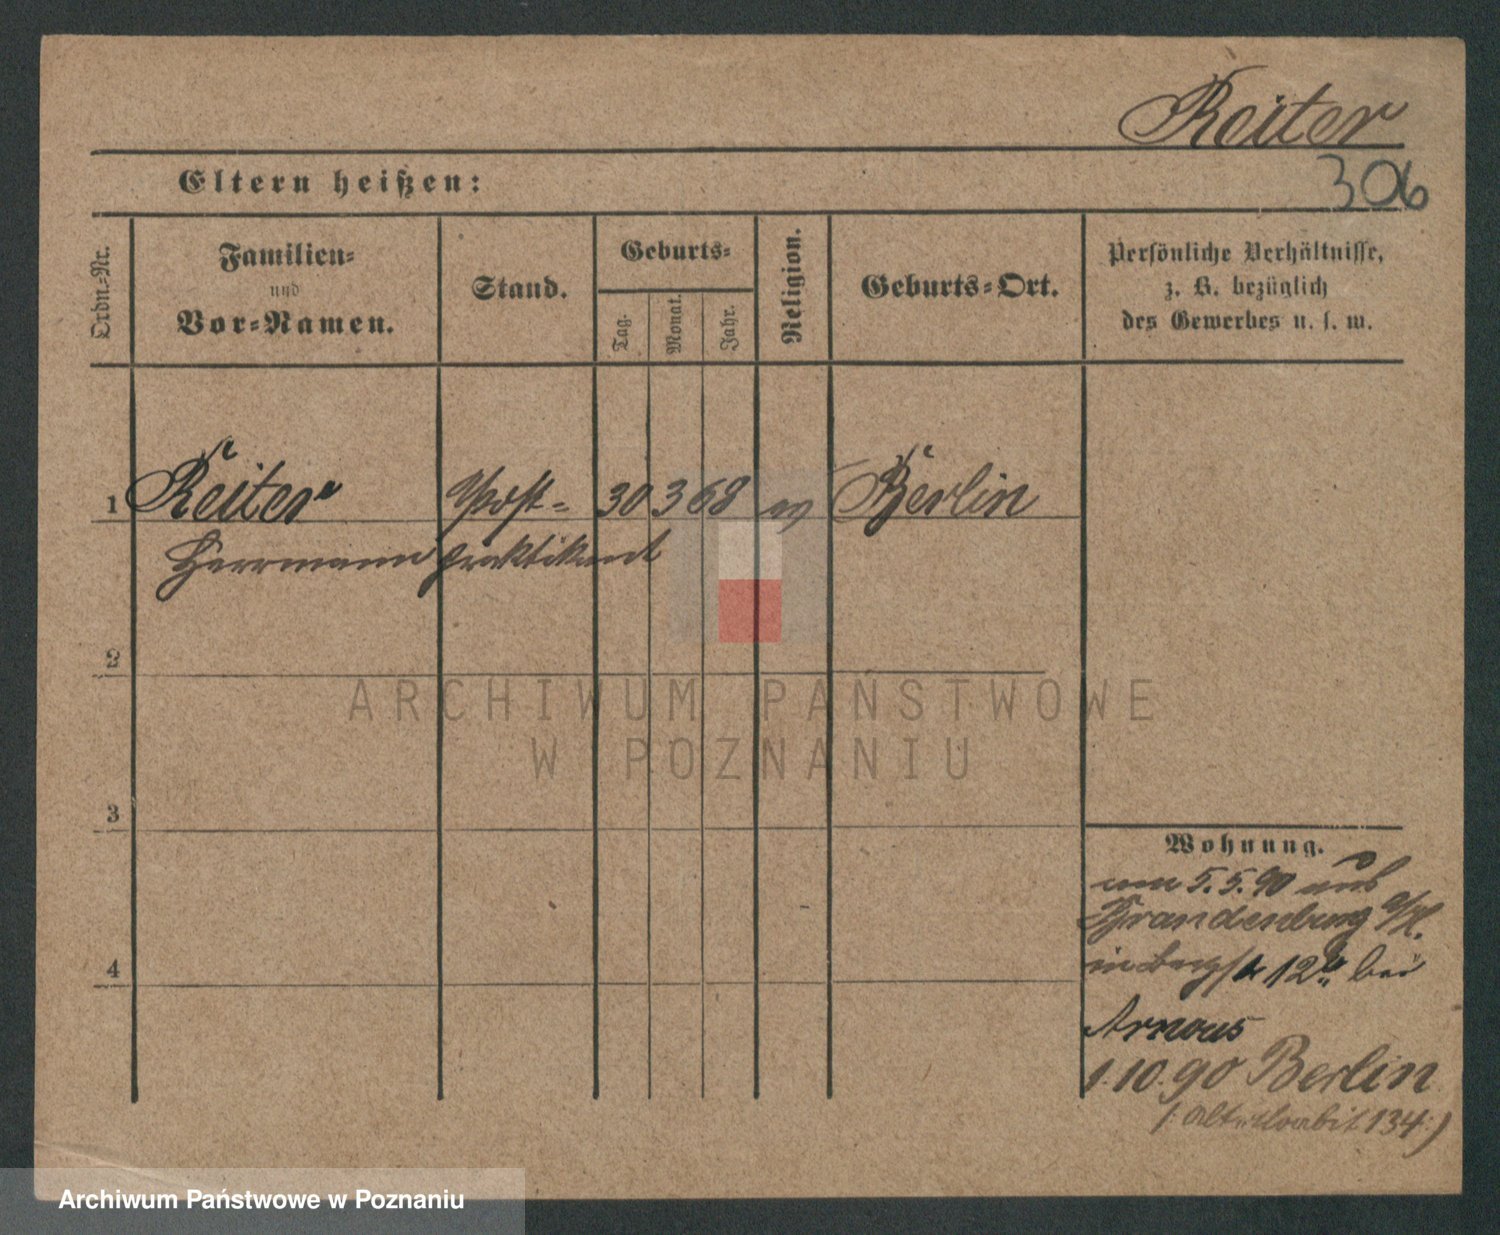 Reiter
306
Eltern heißen:
Ordn.-Nr.
Familien-
und
Vor-Namen.
Stand.
Geburts-
Tag.
Monat.
Jahr.
Religion.
Geburts-Ort.
Persönliche Verhältnisse,
z. B. bezüglich
des Gewerbes u. s. w.
1 Reiter Post- 30 3 68 ev Berlin
Herrmann praktikant
2
3
4
Wohnung.
am 5.5.90 aus
Brandenburg a/H.
in 12 bei
Arnous
1.10.90 Berlin
134
ARCHIWUM PAŃSTWOWE
W POZNANIU
Archiwum Państwowe w Poznaniu